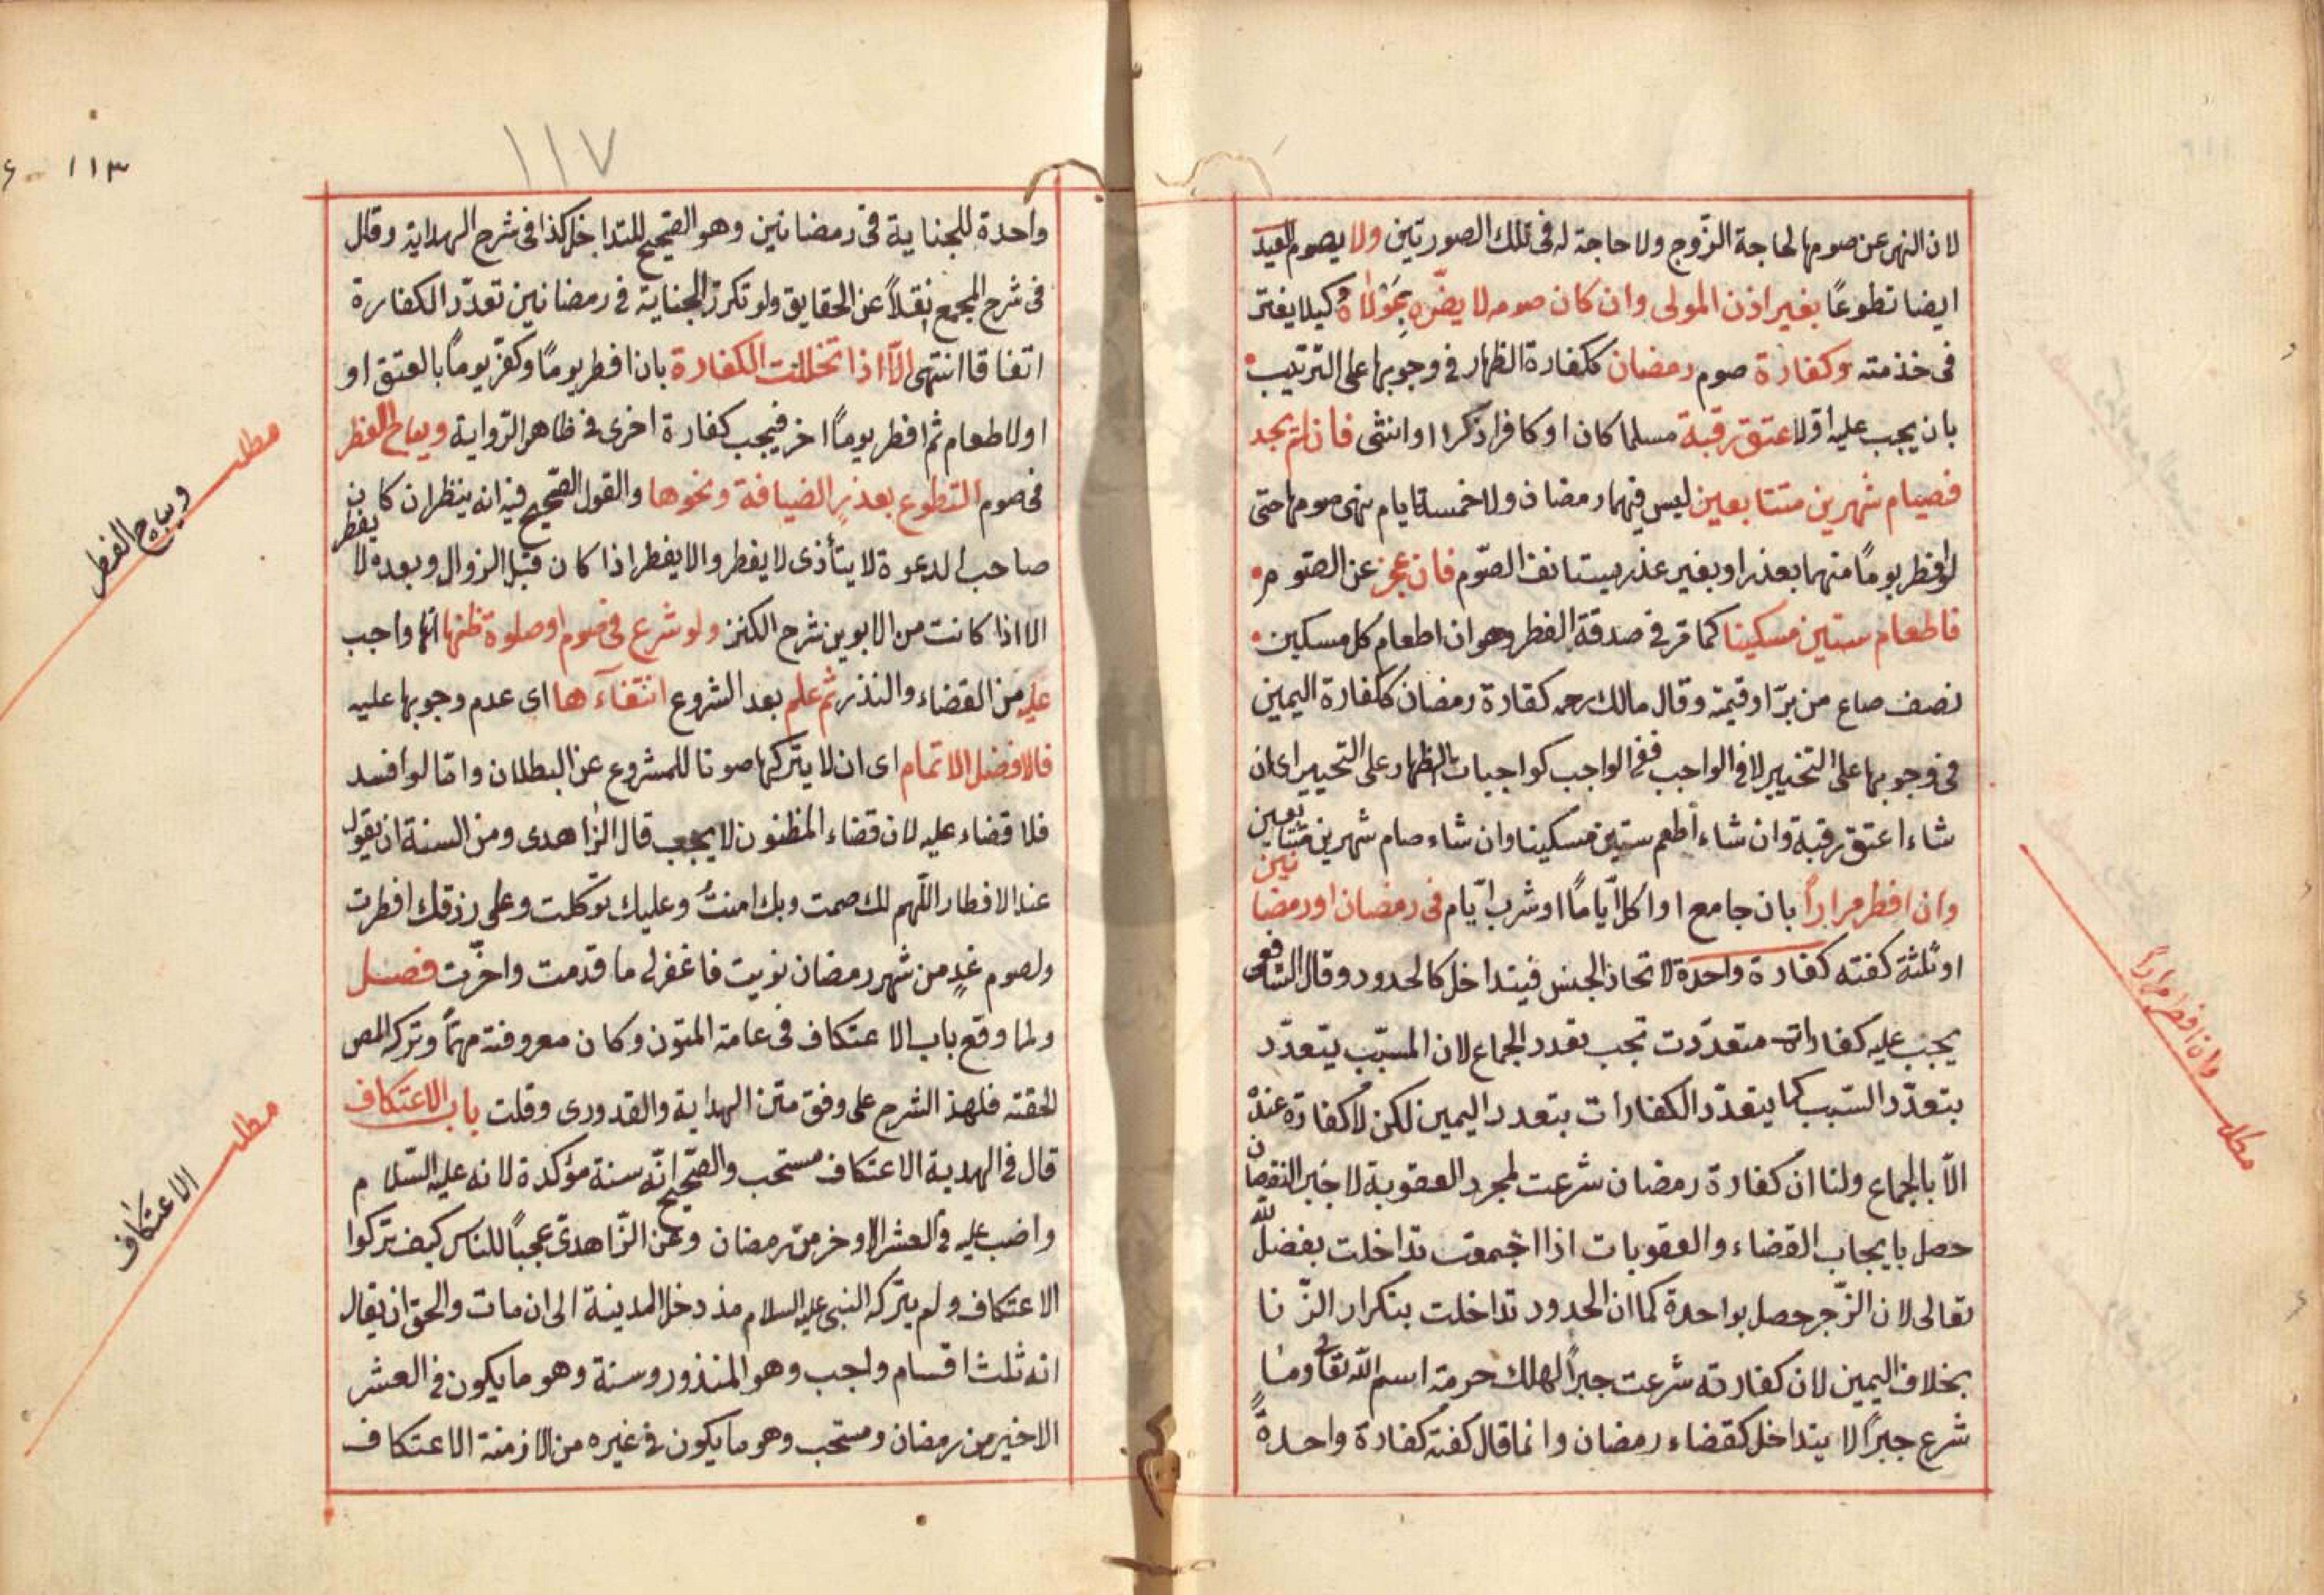 لان النهى عن صومها لحاجة الزّوج ولا حاجة له فى تلك الصورتين ولا يصوم العبد
ايضا تطوعًا بغير اذن المولى وان كان صومه لا يضرّه بِمَوْلاهُ كيلا يفتر
فى خذمته وكفارة صوم رمضان ككفارة الظهار فى وجوبها على الترتيب
بان يجب عليه اوّلا عتق رقبة مسلما كان او كافرا ذكرا او انثى فان لم يجد
فصيام شهرين متتابعين ليس فيهما رمضان ولا خمسة ايام نهى صومها حتى
لو افطر يومًا منهما بعذر او بغير عذر يستانف الصّوم فان عجز عن الصّوم
فاطعام ستين مسكينا كما مّر فى صدقة الفطر وهو ان اطعام كل مسكين
نصف صاع من برّ او قيمته وقال مالك رحمه كفارة رمضان ككفارة اليمين
فى وجوبها على التخيير لا فى الواجب ففى الواجب كواجبات الظهار على التخيير اى ان
شاء اعتق رقبة وان شاء اطعم ستين مسكينا وان شاء صام شهرين متتابعين
وان افطر مرارًا بان جامع او اكل ايّامًا او شرب ايّام فى رمضان او رمضانين
او ثلثة كفته كفارة واحدة لاتحاد الجنس فيتداخل كالحدود وقال الشافعى
يجب عليه كفارات متعدّدت تجب بتعدد الجماع لان المسبّب يتعدّد
بتعدّد السّبب كما يتعدّد الكفارات بتعدد اليمين لكن لا كفارة عندهُ
الّا بالجماع ولنا ان كفارة رمضان شرعت لمجرد العقوبة لا خبر النقصان
حصل بايجاب القضاء والعقوبات اذا اجتمعت تداخلت بفضل لله
تعالى لان الزّجر حصل بواحدة كما ان الحدود تداخلت بتكرار الزّنا
بخلاف اليمين لان كفارته شرعت جبرًا لهلك حرمة اسم الله تعالى وما
شرع جبرًا لا يتداخل كقضاء رمضان وانما قال كفته كفارة واحدةً
وان افطر مرارًا
مطلب
١١٧
١١٣
واحدة للجناية فى رمضانين وهو الصّحيح للتداخل كذا فى شرح الهداية وقال
فى شرح المجمع نقلاً عن الحقايق ولو تكرّر الجناية فى رمضانين تعدّد الكفارة
اتفاقا انتهى الّا اذا تخللت الكفارة بان افطر يومًا وكفّر يومًا بالعتق او
او لاطعام ثم افطر يومًا اخر فيجب كفارة اخرى فى ظاهر الرّواية ويباح الفطر
فى صوم التطوع بعذرٍ الضيافة ونحوها والقول الصّحيح فيه انه ينظر ان كان
صاحب الدعوة لا يتأذى لا يفطر والا يفطر اذا كان قبل الزوال وبعده لا يفطر
الا اذا كانت من الابوين شرح الكنز ولو شرع فى صوم او صلوة ظنها انّها واجب
عليه من القضاء والنذر ثم علم بعد الشروع انتفآءها اى عدم وجوبها عليه
فالافضل الاتمام اى ان لا يتركها صونا للمشروع عن البطلان وامّا لو افسد
فلا قضاء عليه لان قضاء المظنون لا يجب قال الزاهدى ومن السنة ان يقول
عند الافطار اللّهم لك صمت وبك امنتُ وعليك توكلت وعلى رزقك افطرت
ولصوم غدٍ من شهر رمضان نويت فاغفرلى ما قدمت واخّرت فصل
ولما وقع باب الاعتكاف فى عامة المتون وكان معروفته مهمّاً وتركه المص
لحقته فلهذ الشرح على وفق متن الهداية والقدورى وقلت باب الاعتكاف
قال فى الهدية الاعتكاف مستحب والصّحيح انّه سنة مؤكدة لانه عليه السّلام
واضب عليه فى العشر الاوخر من رمضان وعن الزّاهدىّ عجباً للناس كيف تركوا
الاعتكاف ولم يتركه النبى عليه السلام مذ دخل المدينة الى ان مات والحق ان يقال
انه ثلث اقسام واجب وهو المنذور وسنة وهو ما يكون فى العشر
الاخير من رمضان ومستحب وهو ما يكون فى غيره من الازمنة الاعتكاف
مطلب
ويباح الفطر
مطلب
الاعتكاف